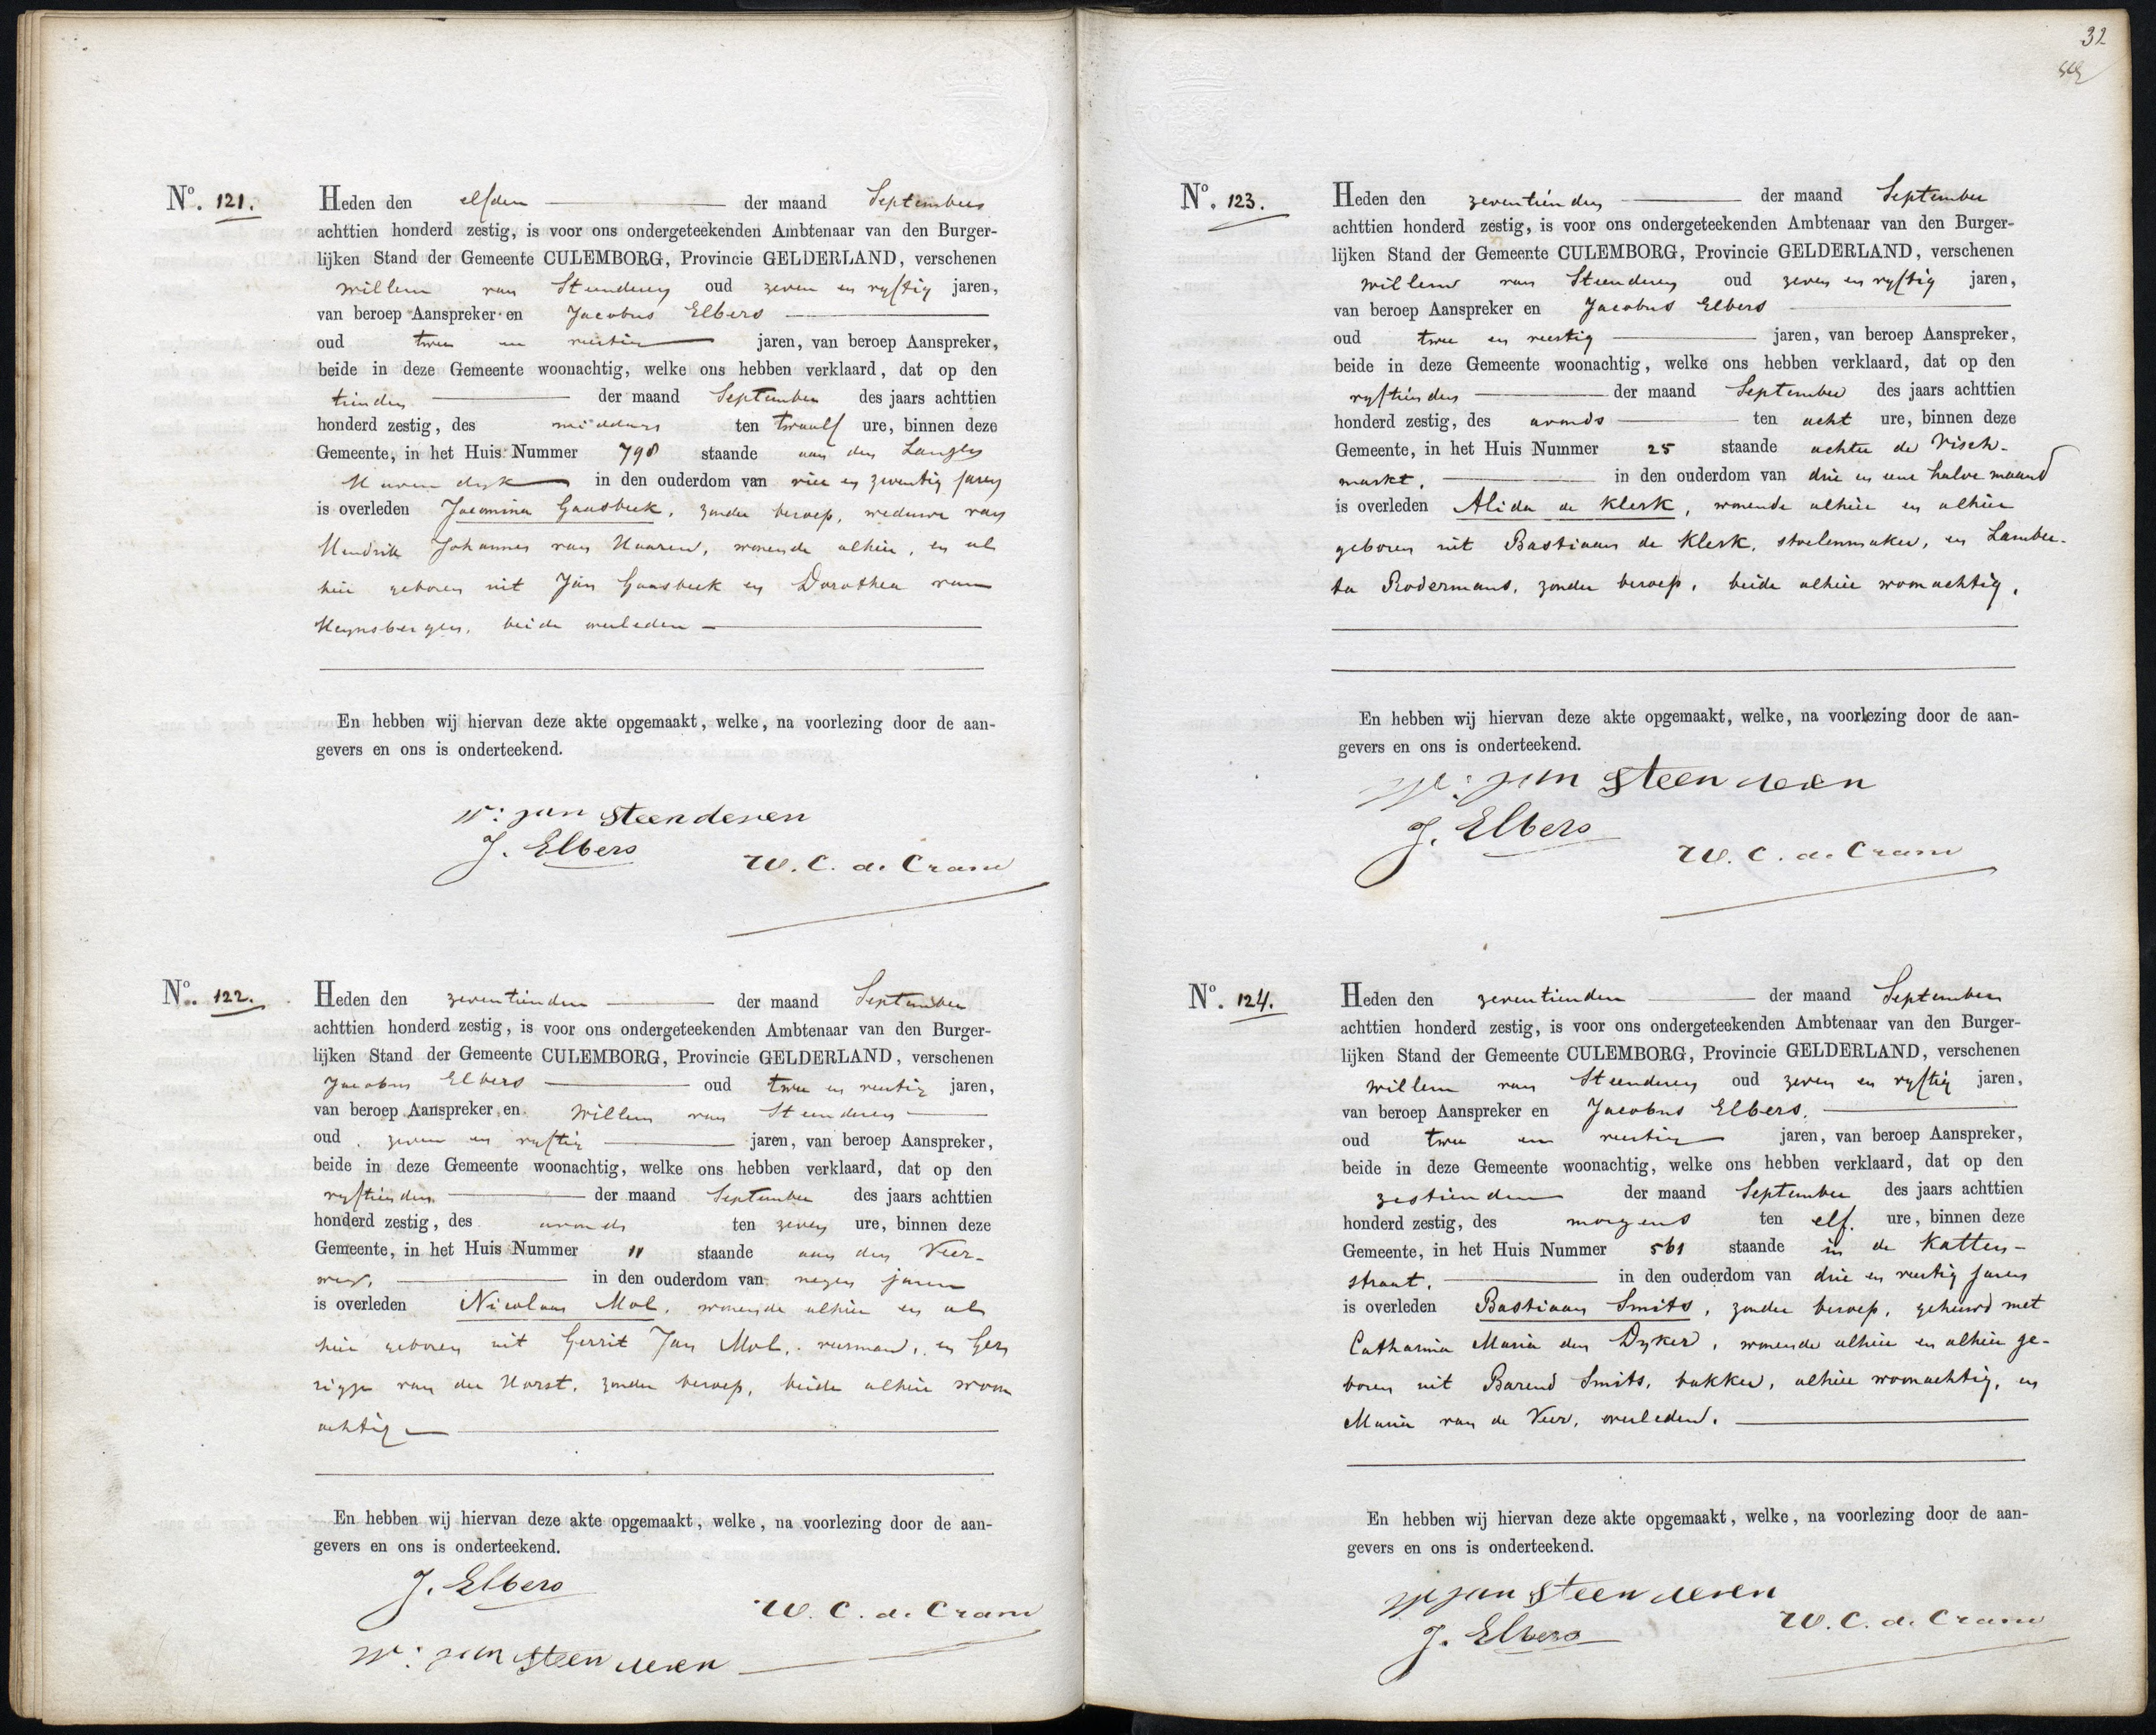 32
No. 121.
Heden den elfden der maand September
achttien honderd zestig, is voor ons ondergeteekenden Ambtenaar van den Burger-
lijken Stand der Gemeente CULEMBORG, Provincie GELDERLAND, verschenen
Willem van Steenderen oud zeven en vyftig jaren,
van beroep Aanspreker en Jacobus Elbers
oud twee en veertig jaren, van beroep Aanspreker,
beide in deze Gemeente woonachtig, welke ons hebben verklaard, dat op den
tienden der maand September des jaars achttien
honderd zestig, des middags ten twaalf ure, binnen deze
Gemeente, in het Huis Nummer 798 staande aan den Langen
Havendyk in den ouderdom van vier en zeventig jaren
is overleden Jacomina Gaasbeek, zonder beroep, weduwe van
Hendrik Johannes van Haaren, wonende alhier, en al
hier geboren uit Jan Gaasbeek en Dorothea van
Heynsbergen, beide overleden
En hebben wij hiervan deze akte opgemaakt, welke, na voorlezing door de aan-
gevers en ons is onderteekend.
W: van Steenderen
J. Elbers
W. C. d. Crane
No. 122.
Heden den zeventienden der maand September
achttien honderd zestig, is voor ons ondergeteekenden Ambtenaar van den Burger-
lijken Stand der Gemeente CULEMBORG, Provincie GELDERLAND, verschenen
Jacobus Elbers oud twee en veertig jaren,
van beroep Aanspreker en Willem van Steenderen
oud zeven en vyftig jaren, van beroep Aanspreker,
beide in deze Gemeente woonachtig, welke ons hebben verklaard, dat op den
vyftienden der maand September des jaars achttien
honderd zestig, des avonds ten zeven ure, binnen deze
Gemeente, in het Huis Nummer 11 staande aan den Veer-
weg, in den ouderdom van negen jaren
is overleden Nicolaas Mol, wonende alhier en al
hier geboren uit Gerrit Jan Mol, voerman, en Ger
rigje van der Horst, zonder beroep, beide alhier woon
achtig
En hebben wij hiervan deze akte opgemaakt, welke, na voorlezing door de aan-
gevers en ons is onderteekend.
J. Elbers
W. C. d. Crane
W: van Steenderen
No. 123.
Heden den zeventienden der maand September
achttien honderd zestig, is voor ons ondergeteekenden Ambtenaar van den Burger-
lijken Stand der Gemeente CULEMBORG, Provincie GELDERLAND, verschenen
Willem van Steenderen oud zeven en vyftig jaren,
van beroep Aanspreker en Jacobus Elbers
oud twee en veertig jaren, van beroep Aanspreker,
beide in deze Gemeente woonachtig, welke ons hebben verklaard, dat op den
vyftienden der maand September des jaars achttien
honderd zestig, des avonds ten acht ure, binnen deze
Gemeente, in het Huis Nummer 25 staande achter de Visch-
markt, in den ouderdom van drie en eene halve maand
is overleden Alida de Klerk, wonende alhier en alhier
geboren uit Bastiaan de Klerk, stoelenmaker, en Lamber-
ta Rodermans, zonder beroep, beide alhier woonachtig,
En hebben wij hiervan deze akte opgemaakt, welke, na voorlezing door de aan-
gevers en ons is onderteekend.
W: van Steenderen
J. Elbers
W. C. d. Crane
No. 124.
Heden den zeventienden der maand September
achttien honderd zestig, is voor ons ondergeteekenden Ambtenaar van den Burger-
lijken Stand der Gemeente CULEMBORG, Provincie GELDERLAND, verschenen
Willem van Steenderen oud zeven en vyftig jaren,
van beroep Aanspreker en Jacobus Elbers,
oud twee en veertig jaren, van beroep Aanspreker,
beide in deze Gemeente woonachtig, welke ons hebben verklaard, dat op den
zestienden der maand September des jaars achttien
honderd zestig, des morgens ten elf. ure, binnen deze
Gemeente, in het Huis Nummer 561 staande in de Katten-
straat, in den ouderdom van drie en veertig jaren
is overleden Bastiaan Smits, zonder beroep, gehuwd met
Catharina Maria den Dyker, wonende alhier en alhier ge-
boren uit Barend Smits, bakker, alhier woonachtig, en
Maria van de Veer, overleden.
En hebben wij hiervan deze akte opgemaakt, welke, na voorlezing door de aan-
gevers en ons is onderteekend.
W van Steenderen
J. Elbers
W. C. d. Crane